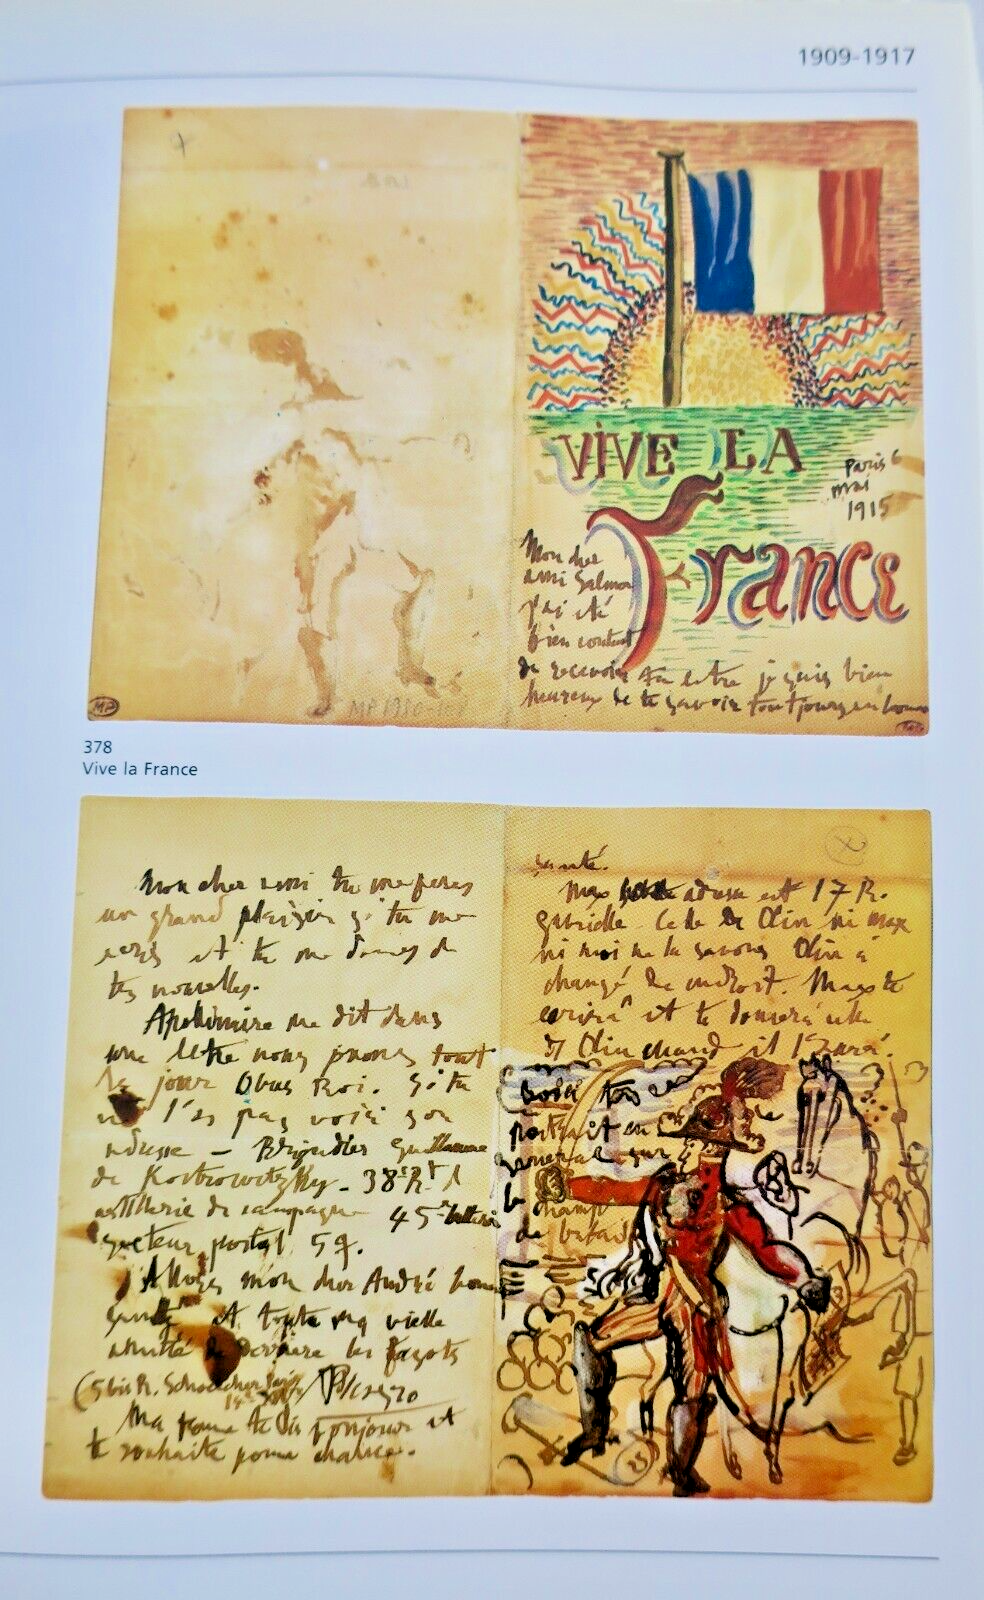 1909-1917
VIVE LA
FRANCE
Paris 6
mai
1915
Mon cher
ami Salmon
j'ai été
bien content
de recevoir ta letre je suis bien
heureux de te savoir toutjours en bonne
MP
378
Vive la France
Mon cher ami tu me feras
un grand plaisir si tu me
ecris et tu me donnes de
tes nouvelles.
Apollinaire me dit dans
une letre nous jouons tout
les jour Obus Roi. Si tu
ne l'as pas voici son
adresse – Brigadier Guillaume
de Kostrowitzky – 38e Rt d
artillerie de campagne 45e batterie
secteur postal 59.
Allons mon cher André bonne
santé et toute ma vielle
amitié de derriere les fagots
(5 bis R. Schoelcher Paris Picasso
Ma femme te dit bonjour et
te souhaite bonne chance.
santé.
Max adresse est 17 R.
Gabrielle. Celle de Olin ni Max
ni moi ne la savons Olin à
changé de endroit. Max te
ecrira et te donnera celle
d Olin quand il l'aura.
Voici ton
portrait en
general sur
le champ
de bataille
25